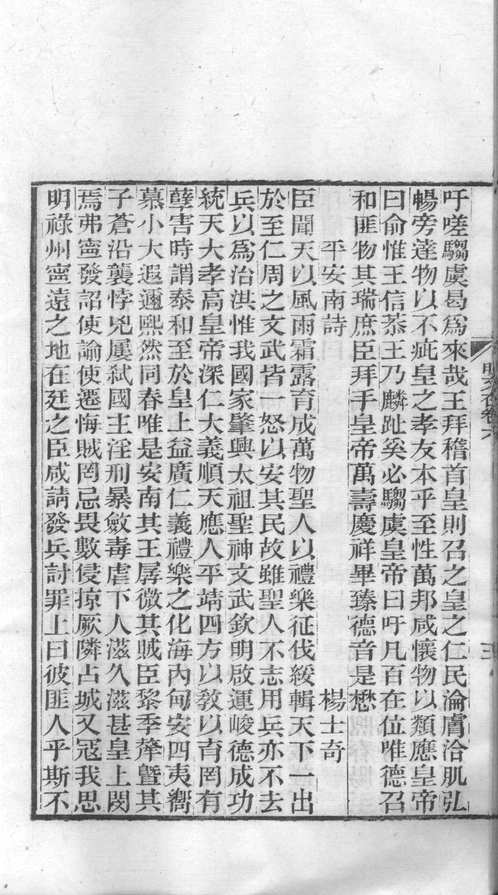 吁嗟騶虞曷爲來哉王拜稽首皇則召之皇之仁民淪膚洽肌弘
暢旁達物以不疵皇之孝友本乎至性萬邦咸懷物以類應皇帝
曰俞惟王信恭王乃麟趾奚必騶虞皇帝曰吁凡百在位唯德召
和匪物其瑞庶臣拜手皇帝萬壽慶祥畢臻德音是懋
平安南詩 楊士奇
臣聞天以風雨霜露育成萬物聖人以禮樂征伐綏輯天下一出
於至仁周之文武皆一怒以安其民故雖聖人不志用兵亦不去
兵以爲治洪惟我國家肇興太祖聖神文武欽明啟運峻德成功
統天大孝高皇帝深仁大義順天應人平靖四方以教以育罔有
孽害時謂泰和至於皇上益廣仁義禮樂之化海內甸安四夷嚮
慕小大遐邇熙然同春唯是安南其王孱微其賊臣黎季犛暨其
子蒼沿襲悖兇屢弒國主淫刑暴斂毒虐下人滋久滋甚皇上閔
焉弗寧發詔使諭使遷悔賊罔忌畏數侵掠厥隣占城又冦我思
明祿州寧遠之地在廷之臣咸請發兵討罪上曰彼匪人乎斯不